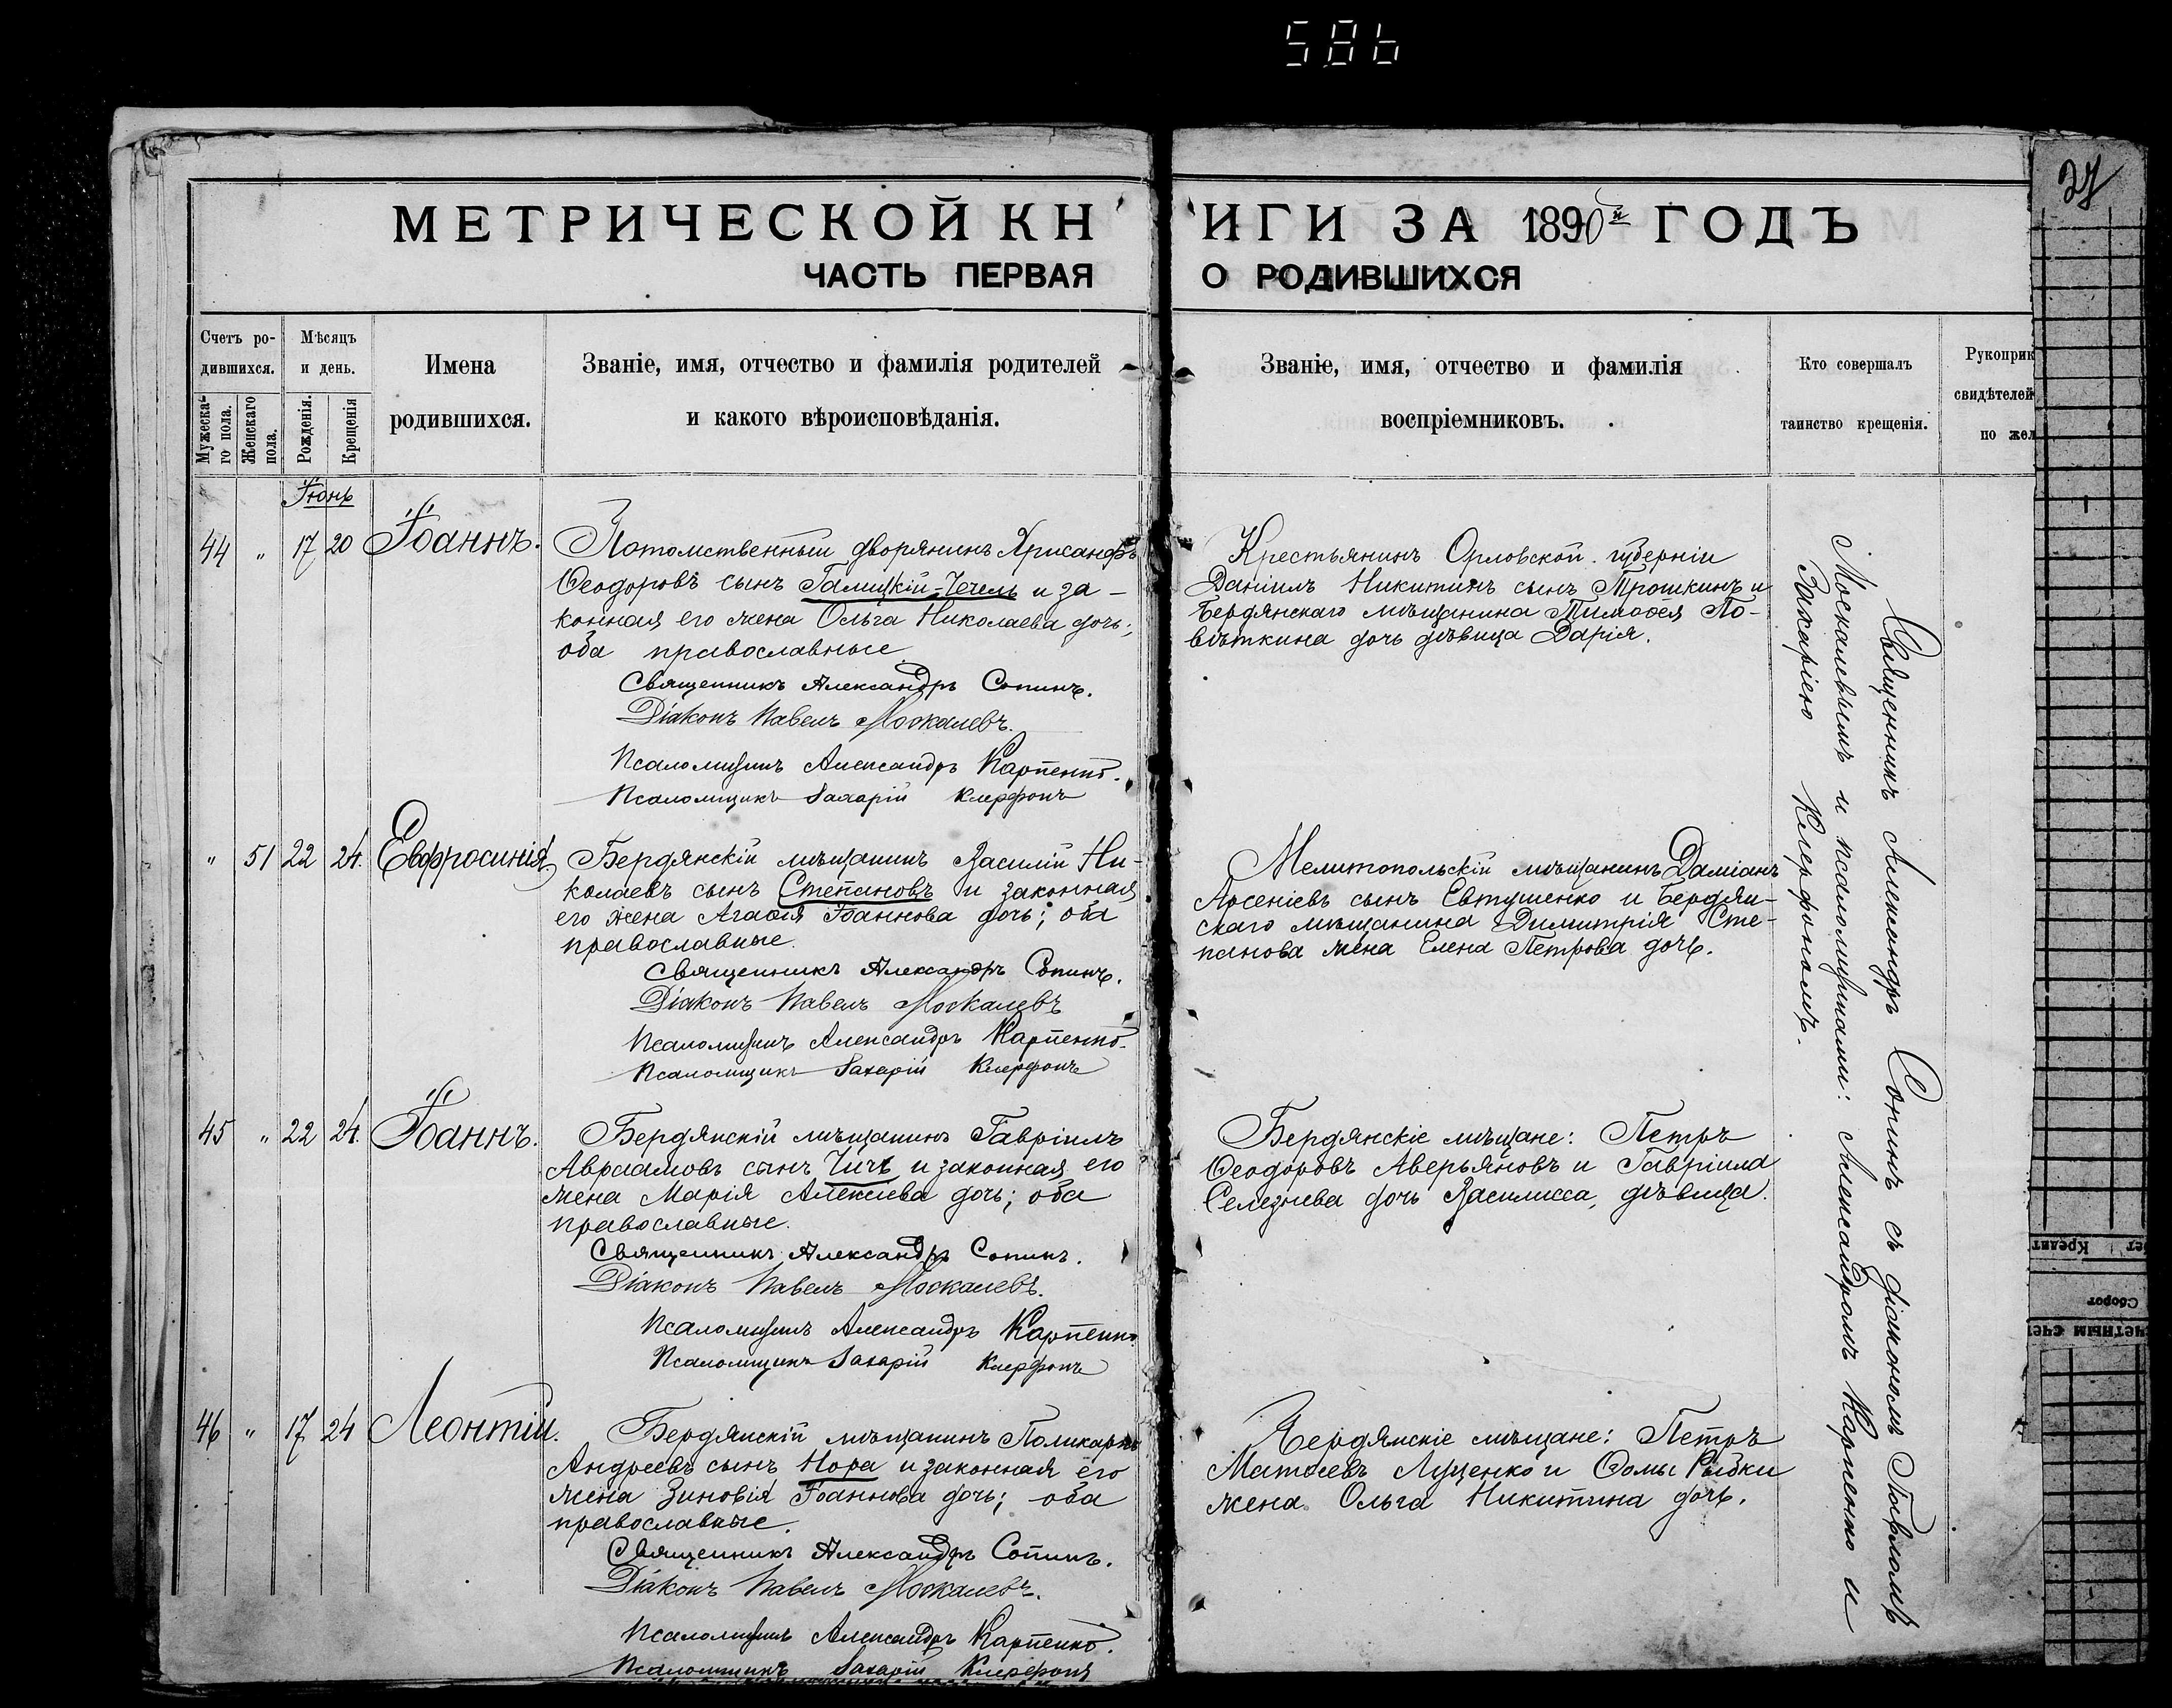 586
37
МЕТРИЧЕСКОЙ КН
ИГИ ЗА 1890й ГОДЪ
ЧАСТЬ ПЕРВАЯ
О РОДИВШИХСЯ
Счетъ ро-
дившихся.
Мужеска-
го пола.
Женскаго
пола.
Мѣсяцъ
и день.
Рожденія.
Крещенія
Имена
родившихся.
Званіе, имя, отчество и фамилія родителей
и какого вѣроисповѣданія.
Званіе, имя, отчество и фамилія
воспріемниковъ.
Кто совершалъ
таинство крещенія.
Рукоприк
свидѣтелей
по жел
Іюнь
44 " 17 20 Іоаннъ.
Потомственный дворянинъ Хрисанфъ
Ѳеодоровъ сынъ Галицкій-Чечель и за-
конная его жена Ольга Николаева дочь;
оба православные
Священникъ Александръ Сопинъ.
Діаконъ Павелъ Москалевъ.
Псаломщикъ Александръ Карпенко.
Псаломщикъ Захарій Клерфонъ
Крестьянинъ Орловской губерніи
Даніилъ Никитинъ сынъ Трошкинъ и
Бердянскаго мѣщанина Тимоѳея По-
вѣткина дочь дѣвица Дарія.
" 51 22 24. Евфросинія.
Бердянскій мѣщанинъ Василій Ни-
колаевъ сынъ Степановъ и законная
его жена Агаѳія Іоаннова дочь; оба
православные.
Священникъ Александръ Сопинъ.
Діаконъ Павелъ Москалевъ
Псаломщикъ Александръ Карпенко.
Псаломщикъ Захарій Клерфонъ
Мелитопольскій мѣщанинъ Даміанъ
Арсеніевъ сынъ Евтушенко и Бердян-
скаго мѣщанина Димитрія Сте-
панова жена Елена Петрова дочь.
45 " 22 24. Іоаннъ.
Бердянскій мѣщанинъ Гавріилъ
Авраамовъ сынъ Чичъ и законная его
жена Марія Алексіева дочь; оба
православные.
Священникъ Александръ Сопинъ.
Діаконъ Павелъ Москалевъ.
Псаломщикъ Александръ Карпенко
Псаломщикъ Захарій Клерфонъ
Бердянскіе мѣщане: Петръ
Ѳеодоровъ Аверьяновъ и Гавріила
Селезнева дочь Василисса, дѣвица.
46 " 17 24 Леонтій.
Бердянскій мѣщанинъ Поликарпъ
Андреевъ сынъ Нора и законная его
жена Зиновія Іоаннова дочь; оба
православные.
Священникъ Александръ Сопинъ.
Діаконъ Павелъ Москалевъ.
Псаломщикъ Александръ Карпенко.
Псаломщикъ Захарій Клерфонъ
Бердянскіе мѣщане: Петръ
Матѳеевъ Луценко и Ѳомы Рыбки
жена Ольга Никитина дочь.
Священникъ Александръ Сопинъ съ діакономъ Павломъ
Москалевымъ и псаломщиками: Александромъ Карпенко и
Захаріею Клерфономъ.
Кредит
Оборот